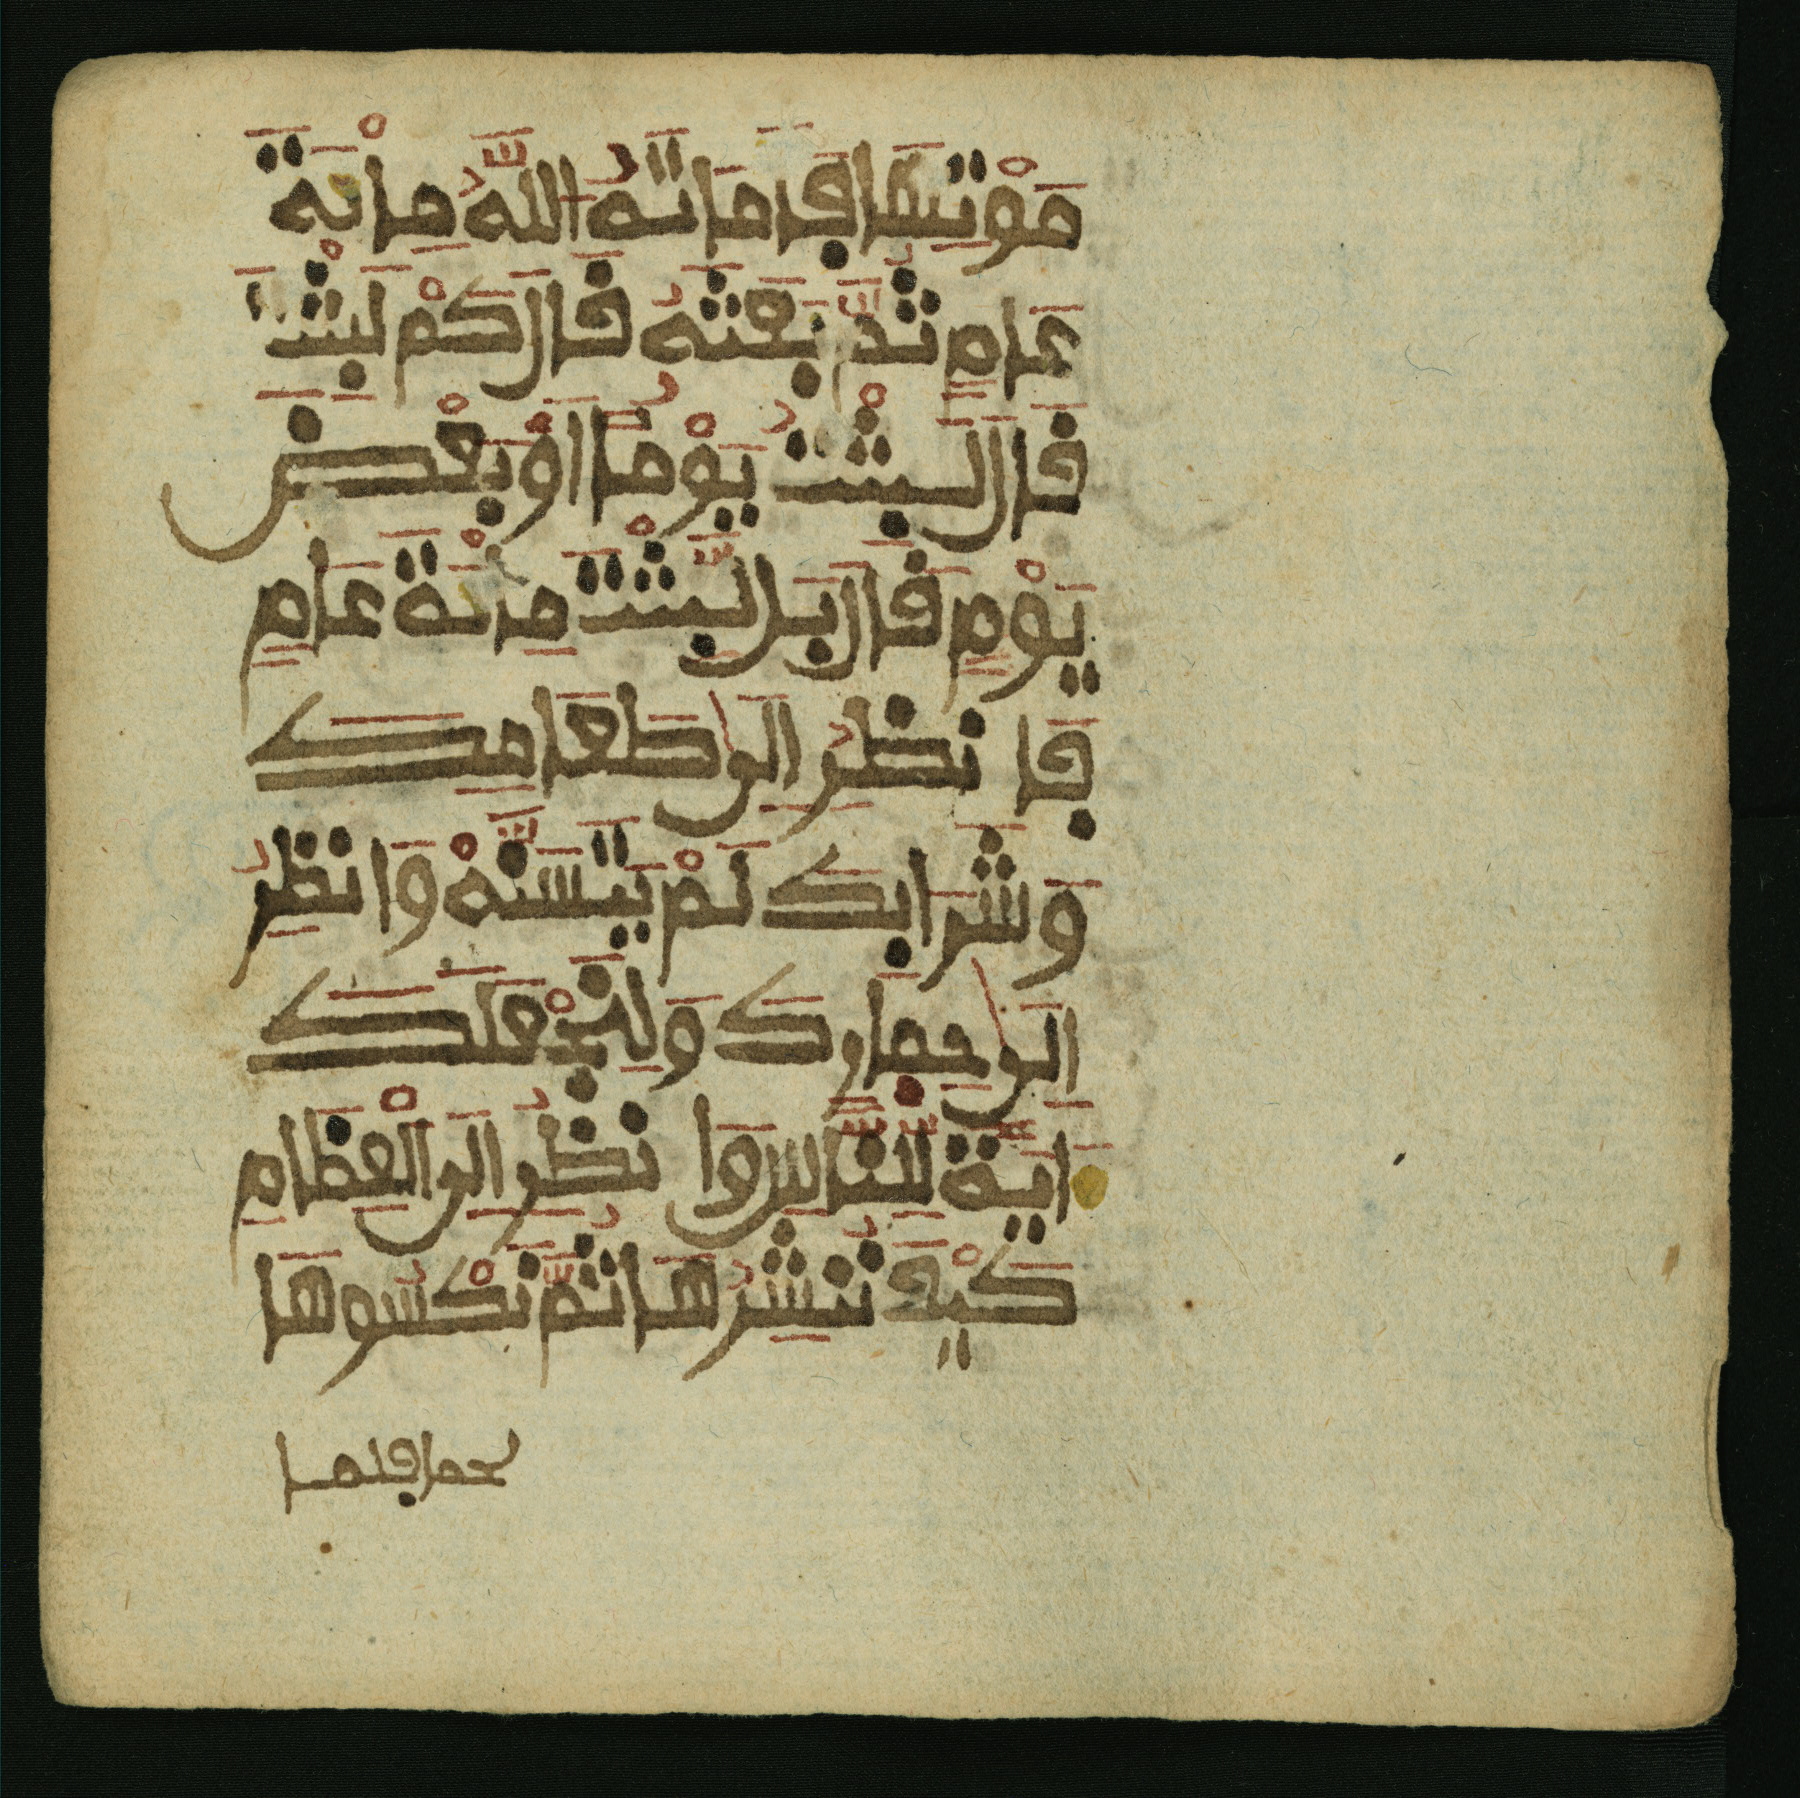 مَوْتِهَا فَأَمَاتَهُ اللَّهُ مِائَةَ
عَامٍ ثُمَّ بَعَثَهُ قَالَ كَمْ لَبِثْتَ
قَالَ لَبِثْتُ يَوْمًا أَوْ بَعْضَ
يَوْمٍ قَالَ بَل لَّبِثْتَ مِائَةَ عَامٍ
فَانظُرِ الَى طَعَامِكَ
وَشَرَابِكَ لَمْ يَتَسَنَّهْ وَانظُرِ
الَى حِمَارِكَ وَلِنَجْعَلَكَ
ءَايَةً لِّلنَّاسِ وَانظُرِ الَى الْعِظَامِ
كَيْفَ نُنشِرُهَا ثُمَّ نَكْسُوهَا
لحما فلما